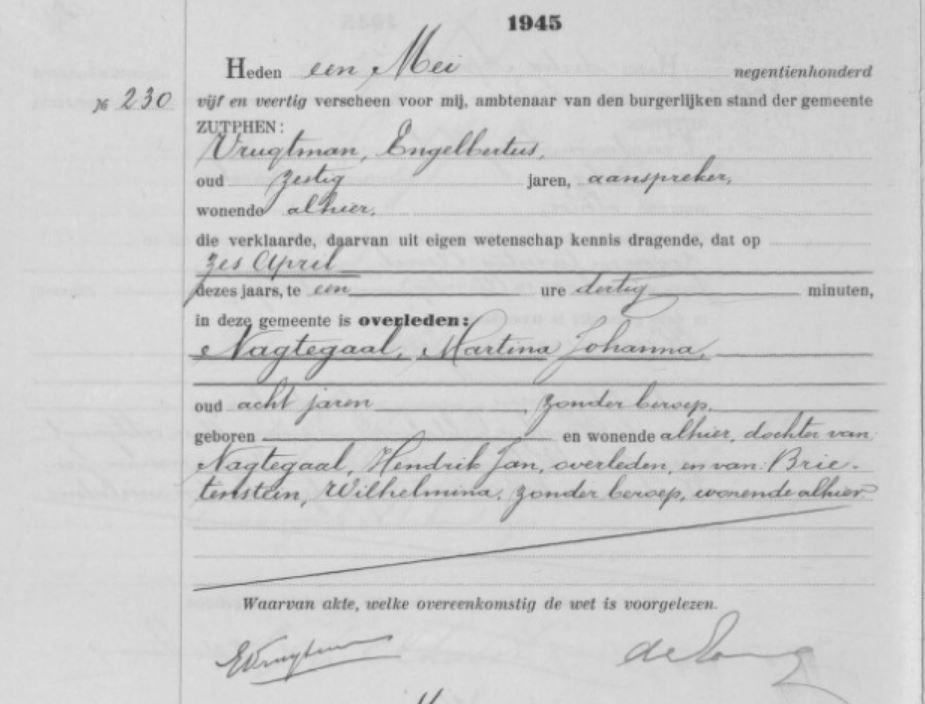 1945
Heden een Mei negentienhonderd
№ 230 vijf en veertig verscheen voor mij, ambtenaar van den burgerlijken stand der gemeente
ZUTPHEN:
Vrugtman, Engelbertus,
oud zestig jaren, aanspreker,
wonende alhier,
die verklaarde, daarvan uit eigen wetenschap kennis dragende, dat op
zes April
dezes jaars, te een ure dertig minuten,
in deze gemeente is overleden:
Nagtegaal, Martina Johanna,
oud acht jaren, zonder beroep,
geboren en wonende alhier, dochter van
Nagtegaal, Hendrik Jan, overleden, en van Brie-
tenstein, Wilhelmina, zonder beroep, wonende alhier
Waarvan akte, welke overeenkomstig de wet is voorgelezen.
EVrugtman